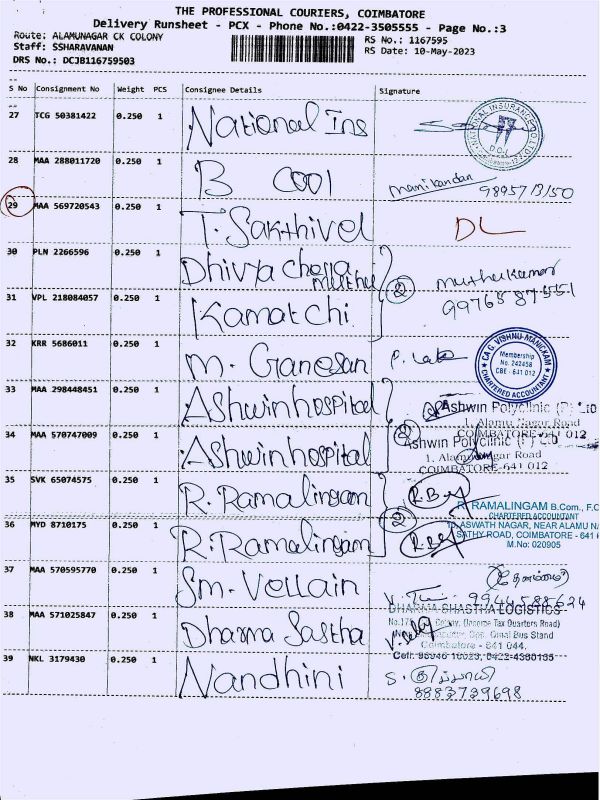 THE PROFESSIONAL COURIERS, COIMBATORE
Delivery Runsheet - PCX - Phone No.:0422-3505555 - Page No.:3
Route: ALAMUNAGAR CK COLONY
RS No.: 1167595
Staff: SSHARAVANAN
RS Date: 10-May-2023
DRS No.: DCJB116759503
S No Consignment No Weight PCS Consignee Details Signature
27 TCG 50381422 0.250 1 National Ins
NATIONAL INSURANCE CO. LTD
28 MAA 288011720 0.250 1 B COOl Manikandan
29 MAA 569720543 0.250 1 T. Sakthivel DL
30 PLN 2266596 0.250 1 Dhivya Chella muthu 2 muthukumar
31 VPL 218084057 0.250 1 Kamatchi
32 KRR 5686011 0.250 1 M. Ganesan
CA G. VISHNU MANICKAM
Membership
No. 242458
CBE - 641 012
CHARTERED ACCOUNTANT
33 MAA 298448451 0.250 1 Ashwin hospital
Ashwin Polyclinic (P) Ltd
1. Alamu Nagar Road
COIMBATORE-641 012
34 MAA 570747009 0.250 1 Ashwin hospital 2
Ashwin Polyclinic (P) Ltd
1. Alamu Nagar Road
COIMBATORE-641 012
35 SVK 65074575 0.250 1 R. Ramalingam
R. RAMALINGAM B.Com., F.C
CHARTERED ACCOUNTANT
ASWATH NAGAR, NEAR ALAMU NA
SATHY ROAD, COIMBATORE - 641
M.No: 020905
36 MYD 8710175 0.250 1 R. Ramalingam 2
37 MAA 570595770 0.250 1 Sm. Vellain
9944588624
38 MAA 571025847 0.250 1 Dharma Sastha
DHARMA SHASTHA LOGISTICS
Colony, (Income Tax Quarters Road)
Opp. Omni Bus Stand
Coimbatore - 641 044.
39 NKL 3179430 0.250 1 Nandhini
8883739698